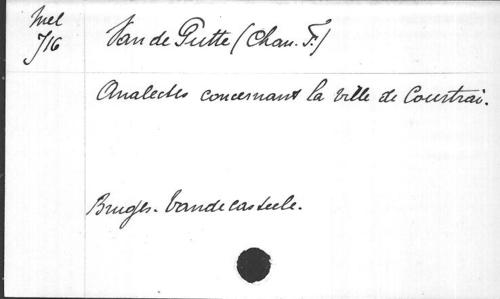 Mel
716
Van de Putte (Chan. F.)
Analectes concernant la ville de Courtrai.
Bruges. Vandecasteele.